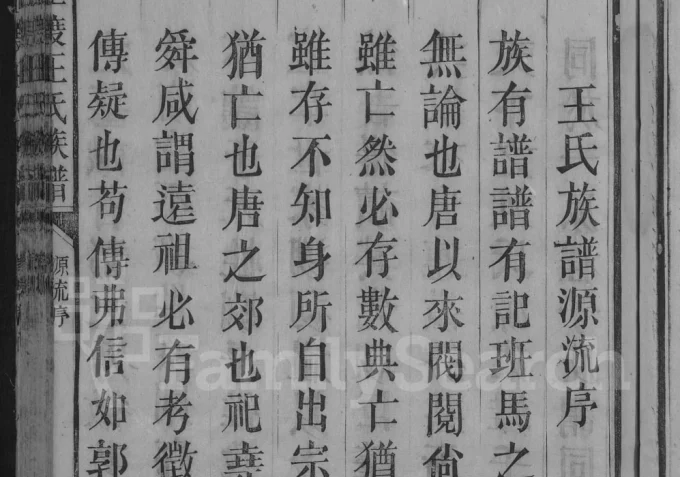 王氏族譜源流序
族有譜譜有記班馬之
無論也唐以來閥閱尙
雖亡然必存數典亡猶
雖存不知身所自出宗
猶亡也唐之郊也祀堯
舜咸謂遠祖必有考徵
傳疑也苟傳弗信如郭
王氏族譜
原流序
FamilySearch